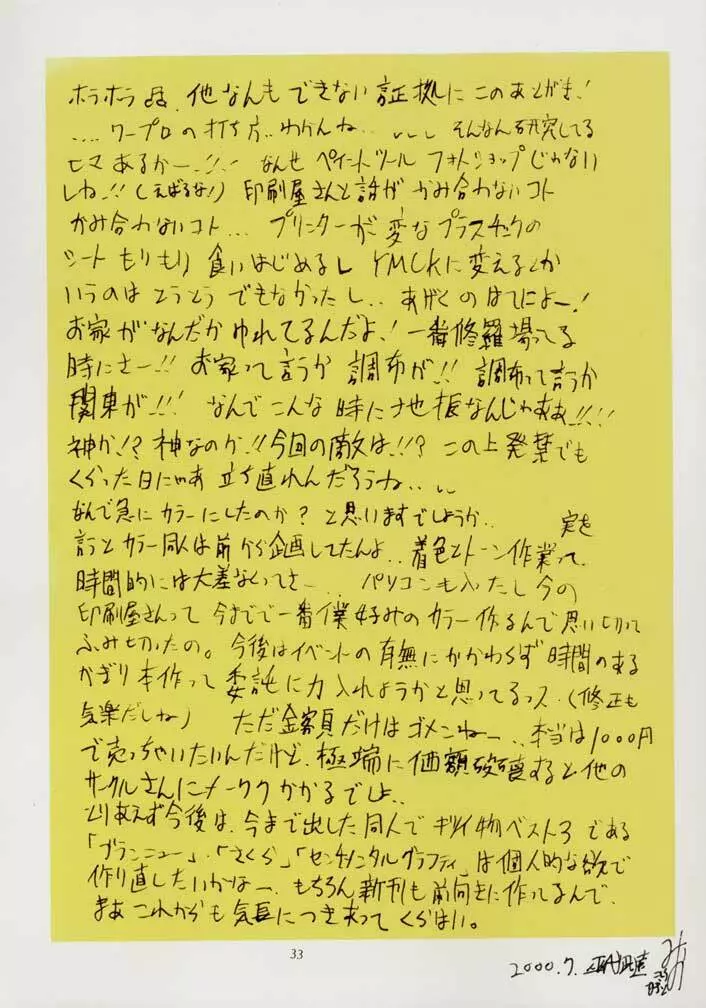 ホラホラ 他なんもできない証拠にこのあとがき！
....ワープロの打ち方..わかんね... そんなん研究してる
ヒマあるかー..!!! なんせペイントツールフォトショップじゃない
しね..!!(えばるな!) 印刷屋さんと話がかみ合わないコト
かみ合わないコト... プリンターが変なプラスチックの
シートもりもり食いはじめるし YMCKに変えるとか
いうのはとうとうできなかったし.. あげくのはてによー.!
お家がなんだかゆれてるんだよ.! 一番修羅場ってる
時にさー..!! お家って言うか調布が..!! 調布って言うか
関東が..!!! なんでこんな時に地振なんじゃぁぁ..!!!!
神か.!? 神なのか..!!今回の敵は..!!? この上発禁でも
くらった日にゃあ立ち直れんだろうね....
なんで急にカラーにしたのか？と思いますでしょうか.. 実を
言うとカラー同人は前から企画してたんよ..着色とトーン作業って、
時間的には大差なくってさー... パソコンも入ったし今の
印刷屋さんって今までで一番僕好みのカラー作るんで思い切って
ふみ切ったの。今後はイベントの有無にかかわらず時間のある
かぎり本作って委託に力入れようかと思ってるっス.(修正も
気楽だしね) ただ金額だけはゴメンねー...本当は1000円
で売っちゃいたいんだけど、極端に価額破壊すると他の
サークルさんにメーワクかかるでしょ..
とりあえず今後は、今まで出した同人でキツイ物ベスト3である
「ブランニュー」・「さくら」「センチメンタルグラフティ」は個人的な欲で
作り直したいかなー、もちろん新刊も前向きに作ってるんで、
まあこれからも気長につき合ってくらはい。
33
2000.7.